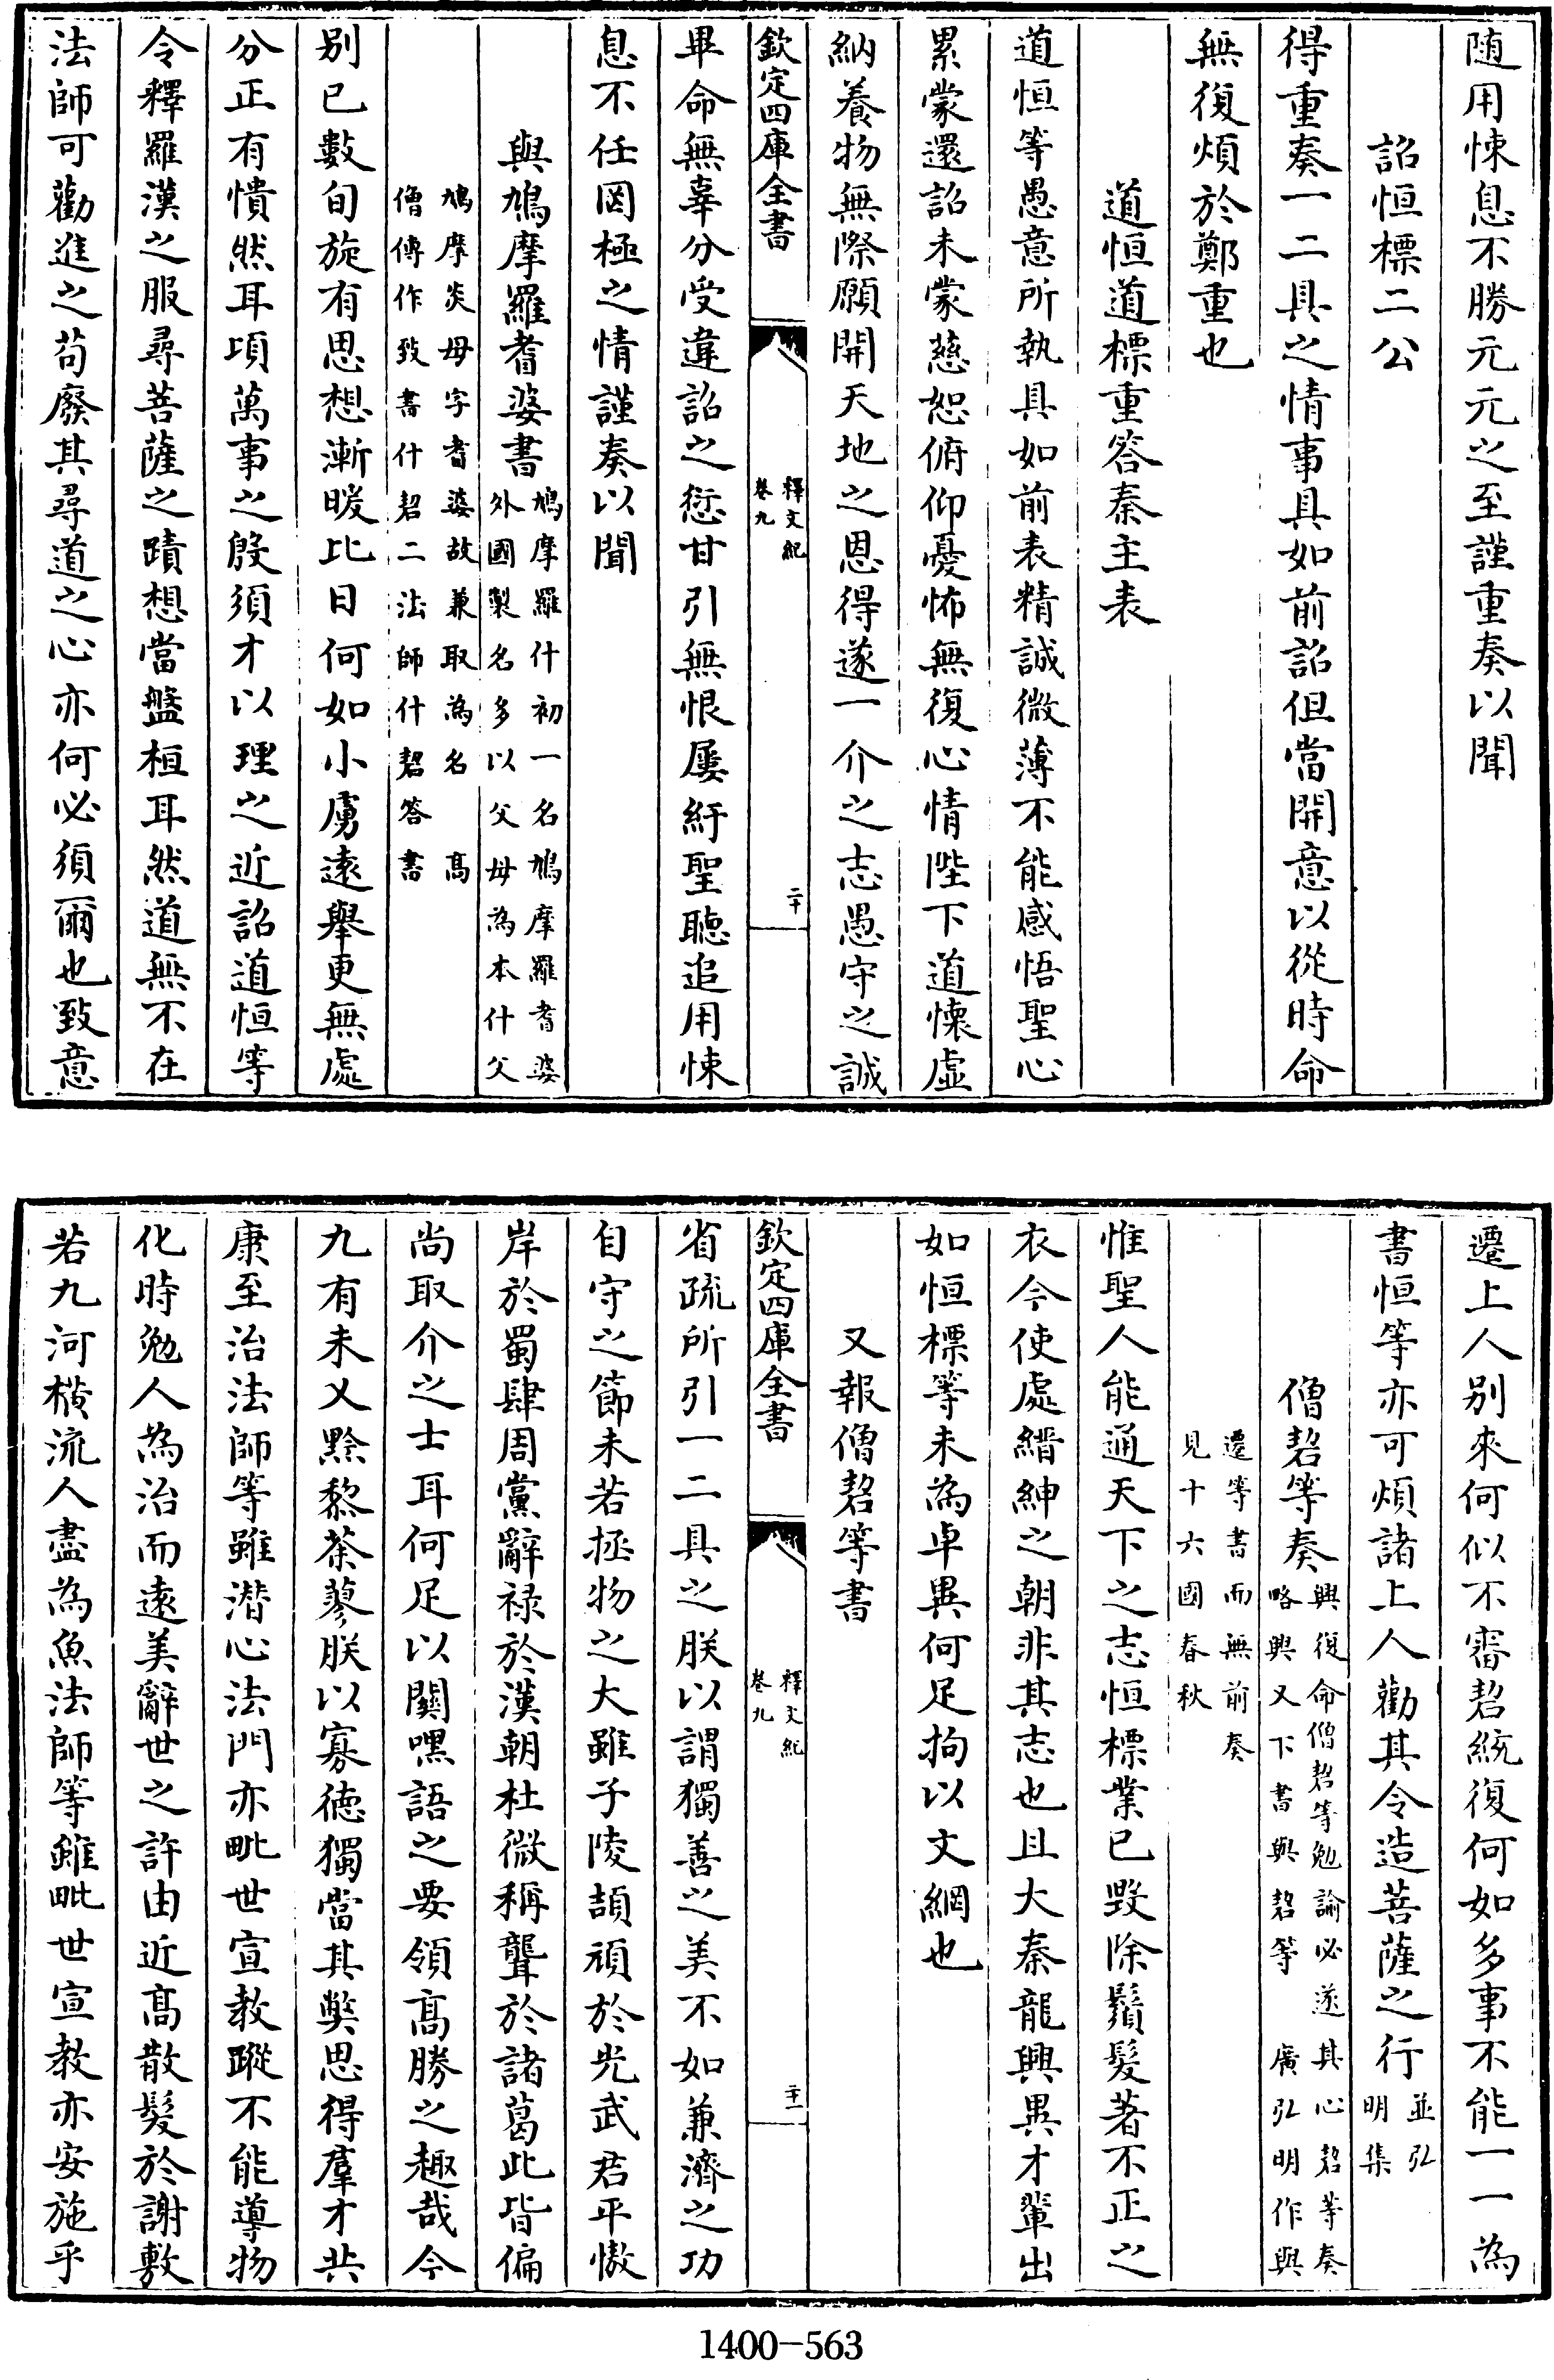 随用悚息不勝元元之至謹重奏以聞
詔恒標二公
得重奏一二具之情事具如前詔但當開意以從時命
無復煩於鄭重也
道恒道標重答秦主表
道恒等愚意所執具如前表精誠微薄不能感悟聖心
累蒙還詔未蒙慈恕俯仰憂怖無復心情陛下道懷虛
納養物無際願開天地之恩得遂一介之志愚守之誠
欽定四庫全書
釋文紀
卷九
二十
畢命無辜分受違詔之愆甘引無恨屢紆聖聽追用悚
息不任罔極之情謹奏以聞
與鳩摩羅耆婆書
鳩摩羅什初一名鳩摩羅耆婆
外國製名多以父母為本什父
鳩摩炎母字耆婆故兼取為名 高
僧傳作致書什䂮二法師什䂮答書
别已數旬旋有思想漸暖比日何如小虜遠舉更無處
分正有憒然耳頃萬事之殷須才以理之近詔道恒等
令釋羅漢之服尋菩薩之蹟想當盤桓耳然道無不在
法師可勸進之苟廢其尋道之心亦何必須爾也致意
遷上人别來何似不審䂮統復何如多事不能一一為
書恒等亦可煩諸上人勸其令造菩薩之行
並弘
明集
僧䂮等奏
興復命僧䂮等勉諭必遂其心䂮等奏
略興又下書與䂮等 廣弘明作與
遷等書而無前奏
見十六國春秋
惟聖人能通天下之志恒標業已毁除鬚髮著不正之
衣今使處縉紳之朝非其志也且大秦龍興異才輩出
如恒標等未為卓異何足拘以文網也
又報僧䂮等書
欽定四庫全書
釋文紀
卷九
二十一
省疏所引一二具之朕以謂獨善之美不如兼濟之功
自守之節未若拯物之大雖子陵頡頏於光武君平慠
岸於蜀肆周黨辭禄於漢朝杜微稱聾於諸葛此皆偏
尚取介之士耳何足以關嘿語之要領高勝之趣哉今
九有未乂黔黎荼蓼朕以寡德獨當其弊思得羣才共
康至治法師等雖潛心法門亦毗世宣教蹤不能導物
化時勉人為治而遠美辭世之許由近高散髮於謝敷
若九河横流人盡為魚法師等雖毗世宣教亦安施乎
1400-563